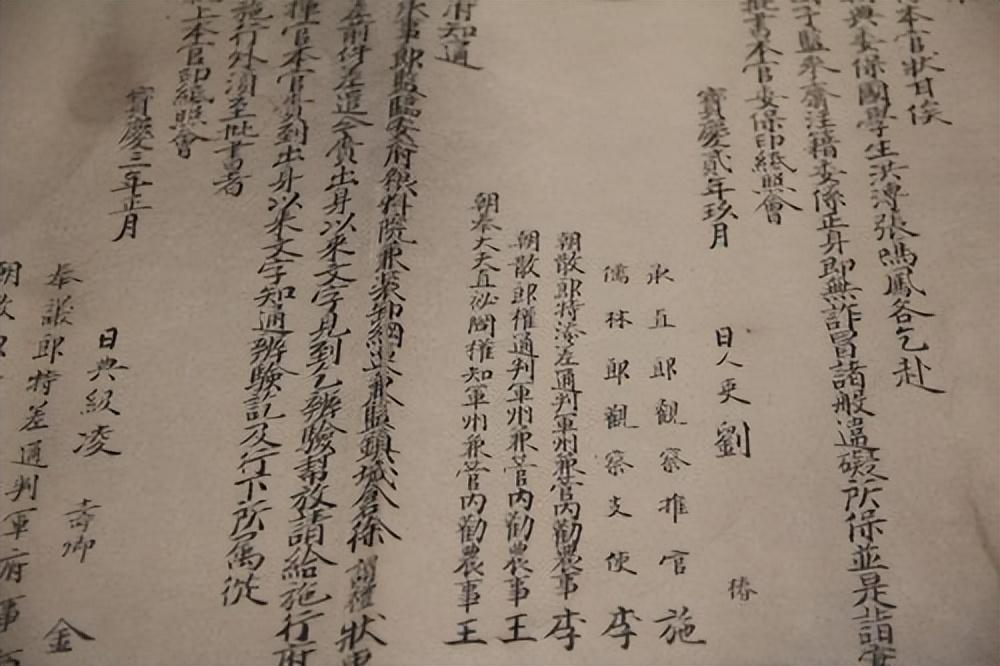 本官狀甘俟
典委保國學生洪溥張鳴鳳各乞赴
子監來齋注籍委保正身即無詐冒諸般違礙所保並是詣實
批書本官委保印紙照會
寶慶貳年玖月
日人吏劉
椿
承直郎觀察推官施
儒林郎觀察支使李
朝散郎特添差通判軍州兼管內勸農事李
朝散郎權通判軍州兼管內勸農事王
朝奉大夫直祕閣權知軍州兼管內勸農事王
府知通
承事郎監臨安府糧料院兼裝卸綱運兼監鎮城倉徐謂禮狀
前件差遣合賫出身以來文字見到乞辨驗幫放請給施行府
本官賫到出身以來文字知通辨驗記及行下所屬從
施行外須至批書者
上本官印紙照會
寶慶三年正月
日典級凌
壽卿
金
奉議郎特差通判軍府事
朝散